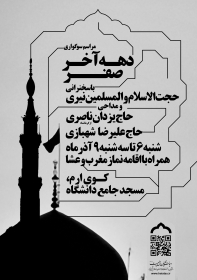 مراسم سوگواری
دهه آخر
صفر
با سخنرانی
حجت الاسلام والمسلمین نیری
و مداحی
حاج یزدان ناصری
حاج علیرضا شهبازی
شنبه ۶ تا سه شنبه ۹ آذر ماه
همراه با اقامه نماز مغرب و عشا
کوی ارم،
مسجد جامع دانشگاه